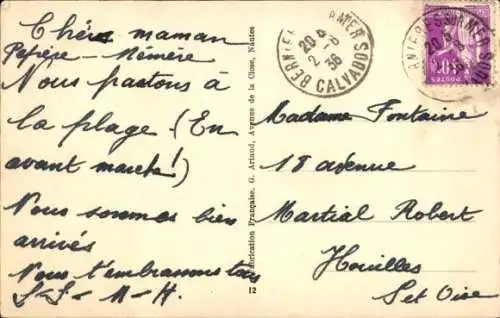 Chère maman
Pepère - Mémère
Nous partons à
la plage (En
avant marche!)
Nous sommes bien
arrivés
Nous t'embrassons tous
S-S- M-H.
Fabrication Française, G. Artaud, Avenue de la Close, Nantes
12
CALVADOS
20
2 -8
36
Madame Fontaine
18 avenue
Martial Robert
Houilles
S et Oise